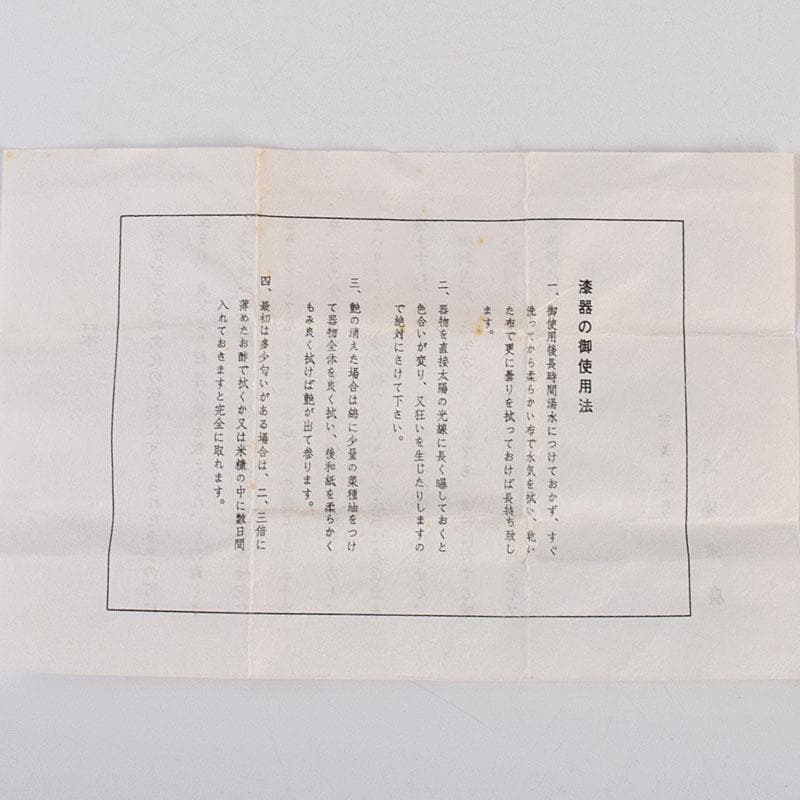 漆器の御使用法
一、御使用後長時間湯水につけておかず、すぐ
洗ってから柔らかい布で水気を拭い、乾い
た布で更に曇りを拭っておけば長持ち致し
ます。
二、器物を直接太陽の光線に長く曝しておくと
色合いが変り、又狂いを生じたりしますの
で絶対にさけて下さい。
三、艶の消えた場合は綿に少量の菜種油をつけ
て器物全体を良く拭い、後和紙を柔らかく
もみ良く拭けば艶が出て参ります。
四、最初は多少匂いがある場合は、二、三倍に
薄めたお酢で拭くか又は米糠の中に数日間
入れておきますと完全に取れます。